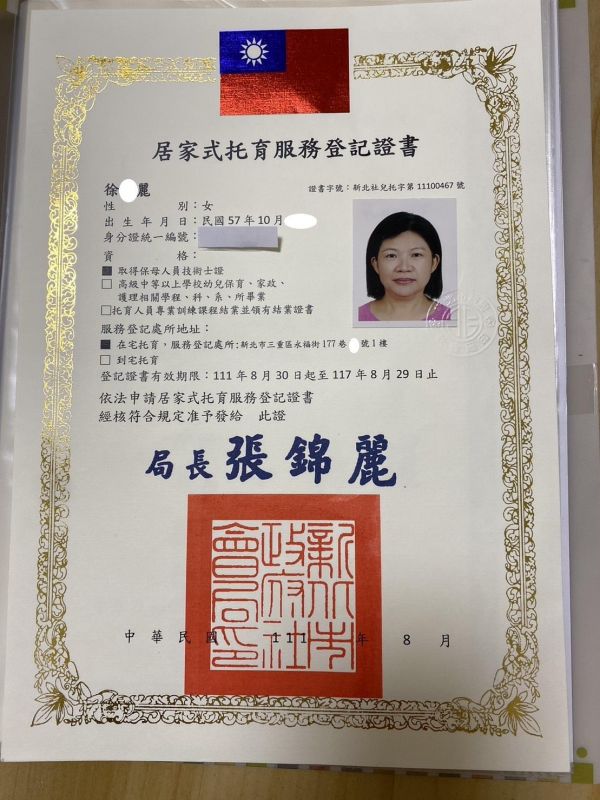 居家式托育服務登記證書
證書字號：新北社兒托字第11100467號
徐 麗
性別：女
出生年月日：民國57年10月
身分證統一編號：
資格：
■取得保母人員技術士證
□高級中等以上學校幼兒保育、家政、
護理相關學程、科、系、所畢業
□托育人員專業訓練課程結業並領有結業證書
服務登記處所地址：
■在宅托育，服務登記處所：新北市三重區永福街177巷 號1樓
□到宅托育
登記證書有效期限：111年8月30日起至117年8月29日止
依法申請居家式托育服務登記證書
經核符合規定准予發給 此證
局長張錦麗
新北市政府社會局印
中華民國 111 年 8 月